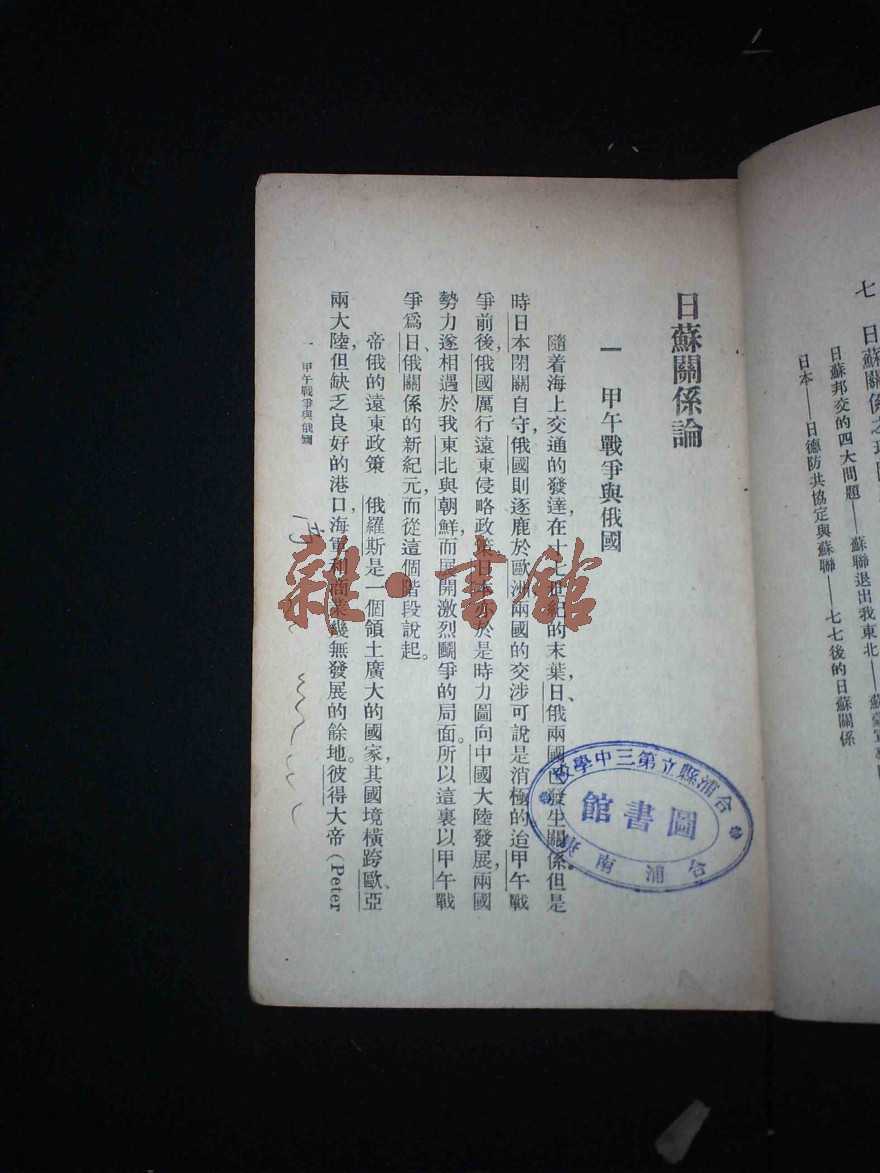 七 日蘇關係之
日蘇邦交的四大問題——蘇聯退出我東北——蘇
日本——日德防共協定與蘇聯——七七後的日蘇關係
日蘇關係論
一 甲午戰爭與俄國
隨着海上交通的發達，在十七世紀的末葉，日、俄兩國已發生關係。但是
時日本閉關自守，俄國則逐鹿於歐洲，兩國的交涉可說是消極的。迨甲午戰
爭前後，俄國厲行遠東侵略政策，日本亦於是時力圖向中國大陸發展，兩國
勢力遂相遇於我東北與朝鮮，而展開激烈鬭爭的局面。所以這裏以甲午戰
爭爲日、俄關係的新紀元，而從這個階段說起。
帝俄的遠東政策 俄羅斯是一個領土廣大的國家，其國境橫跨歐、亞
兩大陸，但缺乏良好的港口，海軍和商業幾無發展的餘地。彼得大帝（Peter
一 甲午戰爭與俄國
合浦縣立第三中學校
圖書館
合浦南
雜·書館